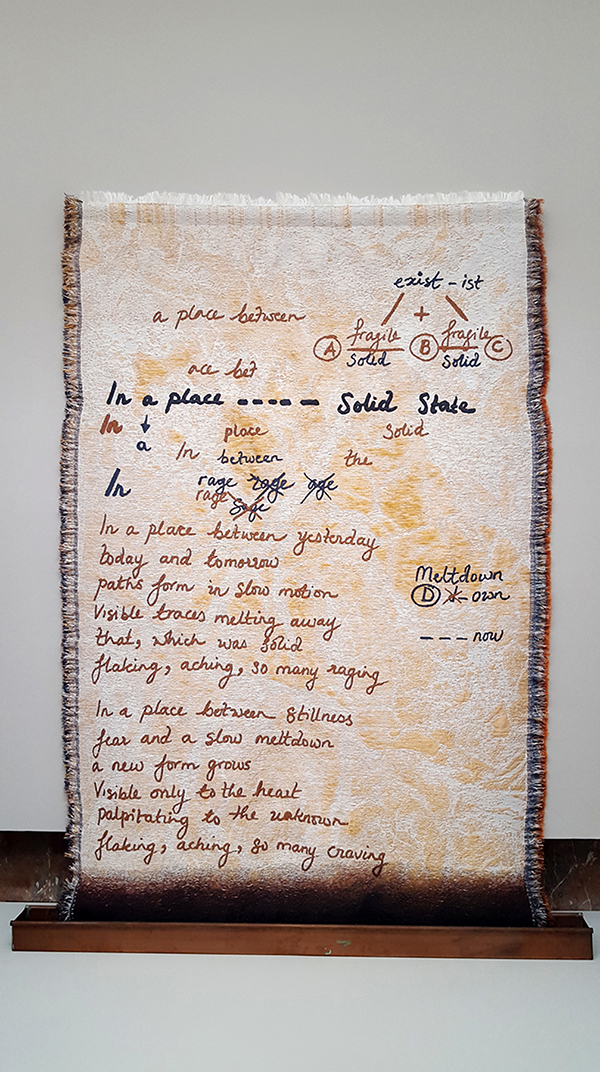 exist-ist
a place between
+
fragile fragile
A solid B solid C
ace bet
In a place ----- Solid State
In place Solid
a In between the
In rage rage age
rage Sage
In a place between yesterday
today and tomorrow
paths form in slow motion
Visible traces melting away
that, which was solid
flaking, aching, so many raging
Meltdown
D - own
--- now
In a place between stillness
fear and a slow meltdown
a new form grows
Visible only to the heart
palpitating to the unknown
flaking, aching, so many craving